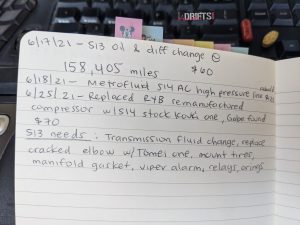 DRIFTS
6/17/21 - S13 Oil & diff change @
158,405 miles $60
6/18/21 - Metrofluid S14 AC high pressure line
6/25/21 - Replaced R4B remanufactured
compressor w/ S14 stock one, Gabe found
$70
S13 needs: Transmission fluid change, replace
cracked elbow w/ Tomei one, mount tires,
manifold gasket, viper alarm, relays, orings